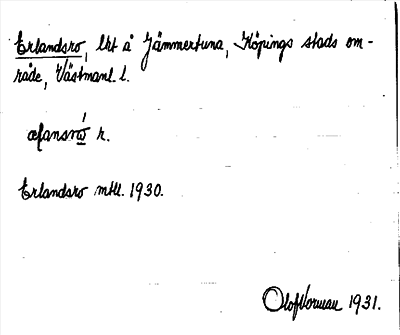 Erlandsro, lht å Jämmertuna, Köpings stads om-
råde, Västmanl. l.
r.
Erlandsro mtl. 1930.
Olof Vorman 1931.